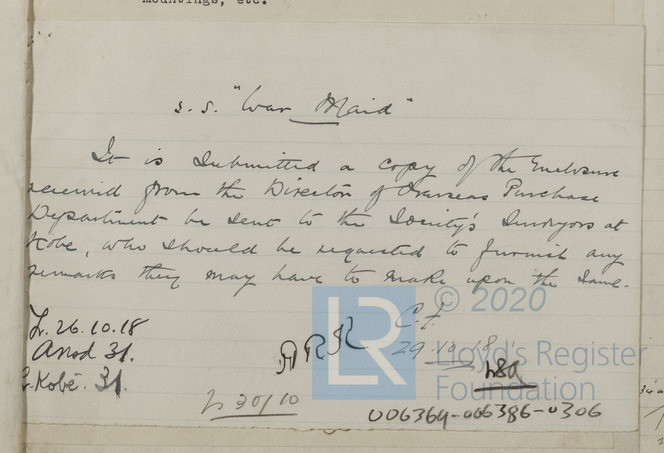 mountings, etc.
s.s. "War Maid"
It is submitted a copy of the Enclosure
received from the Director of Overseas Purchase
Department be sent to the Society's Surveyors at
Kobe, who should be requested to furnish any
remarks they may have to make upon the same.
L. 26.10.18
31.
Kobe. 31.
ARR
C.F.
29.10.18
30/10
006364-006386-0306
LR
© 2020
Lloyd's Register
Foundation